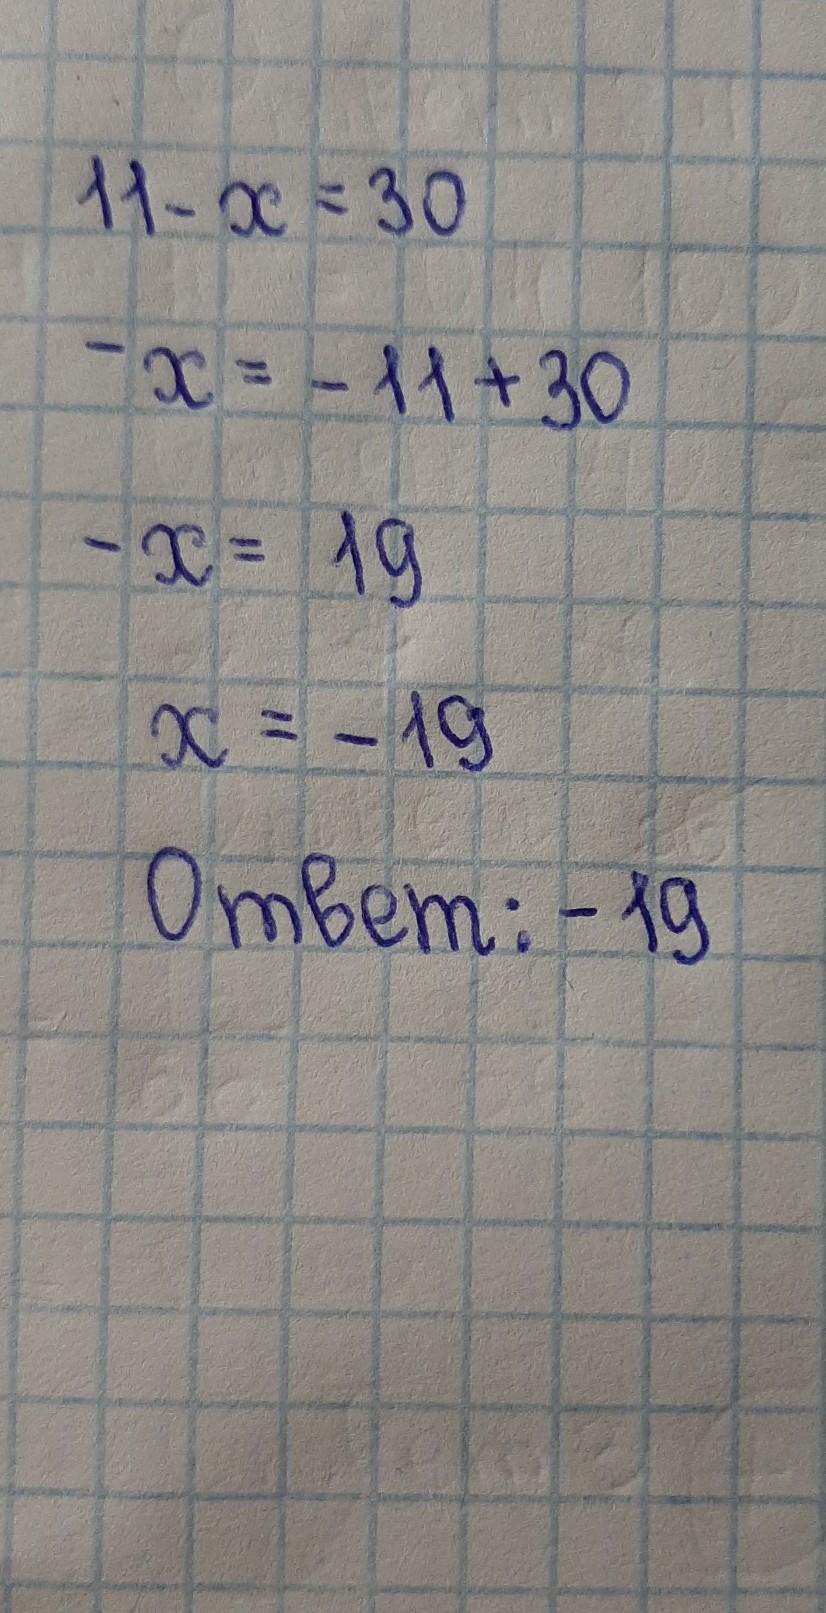 11 - x = 30
- x = - 11 + 30
- x = 19
x = - 19
Ответ: - 19